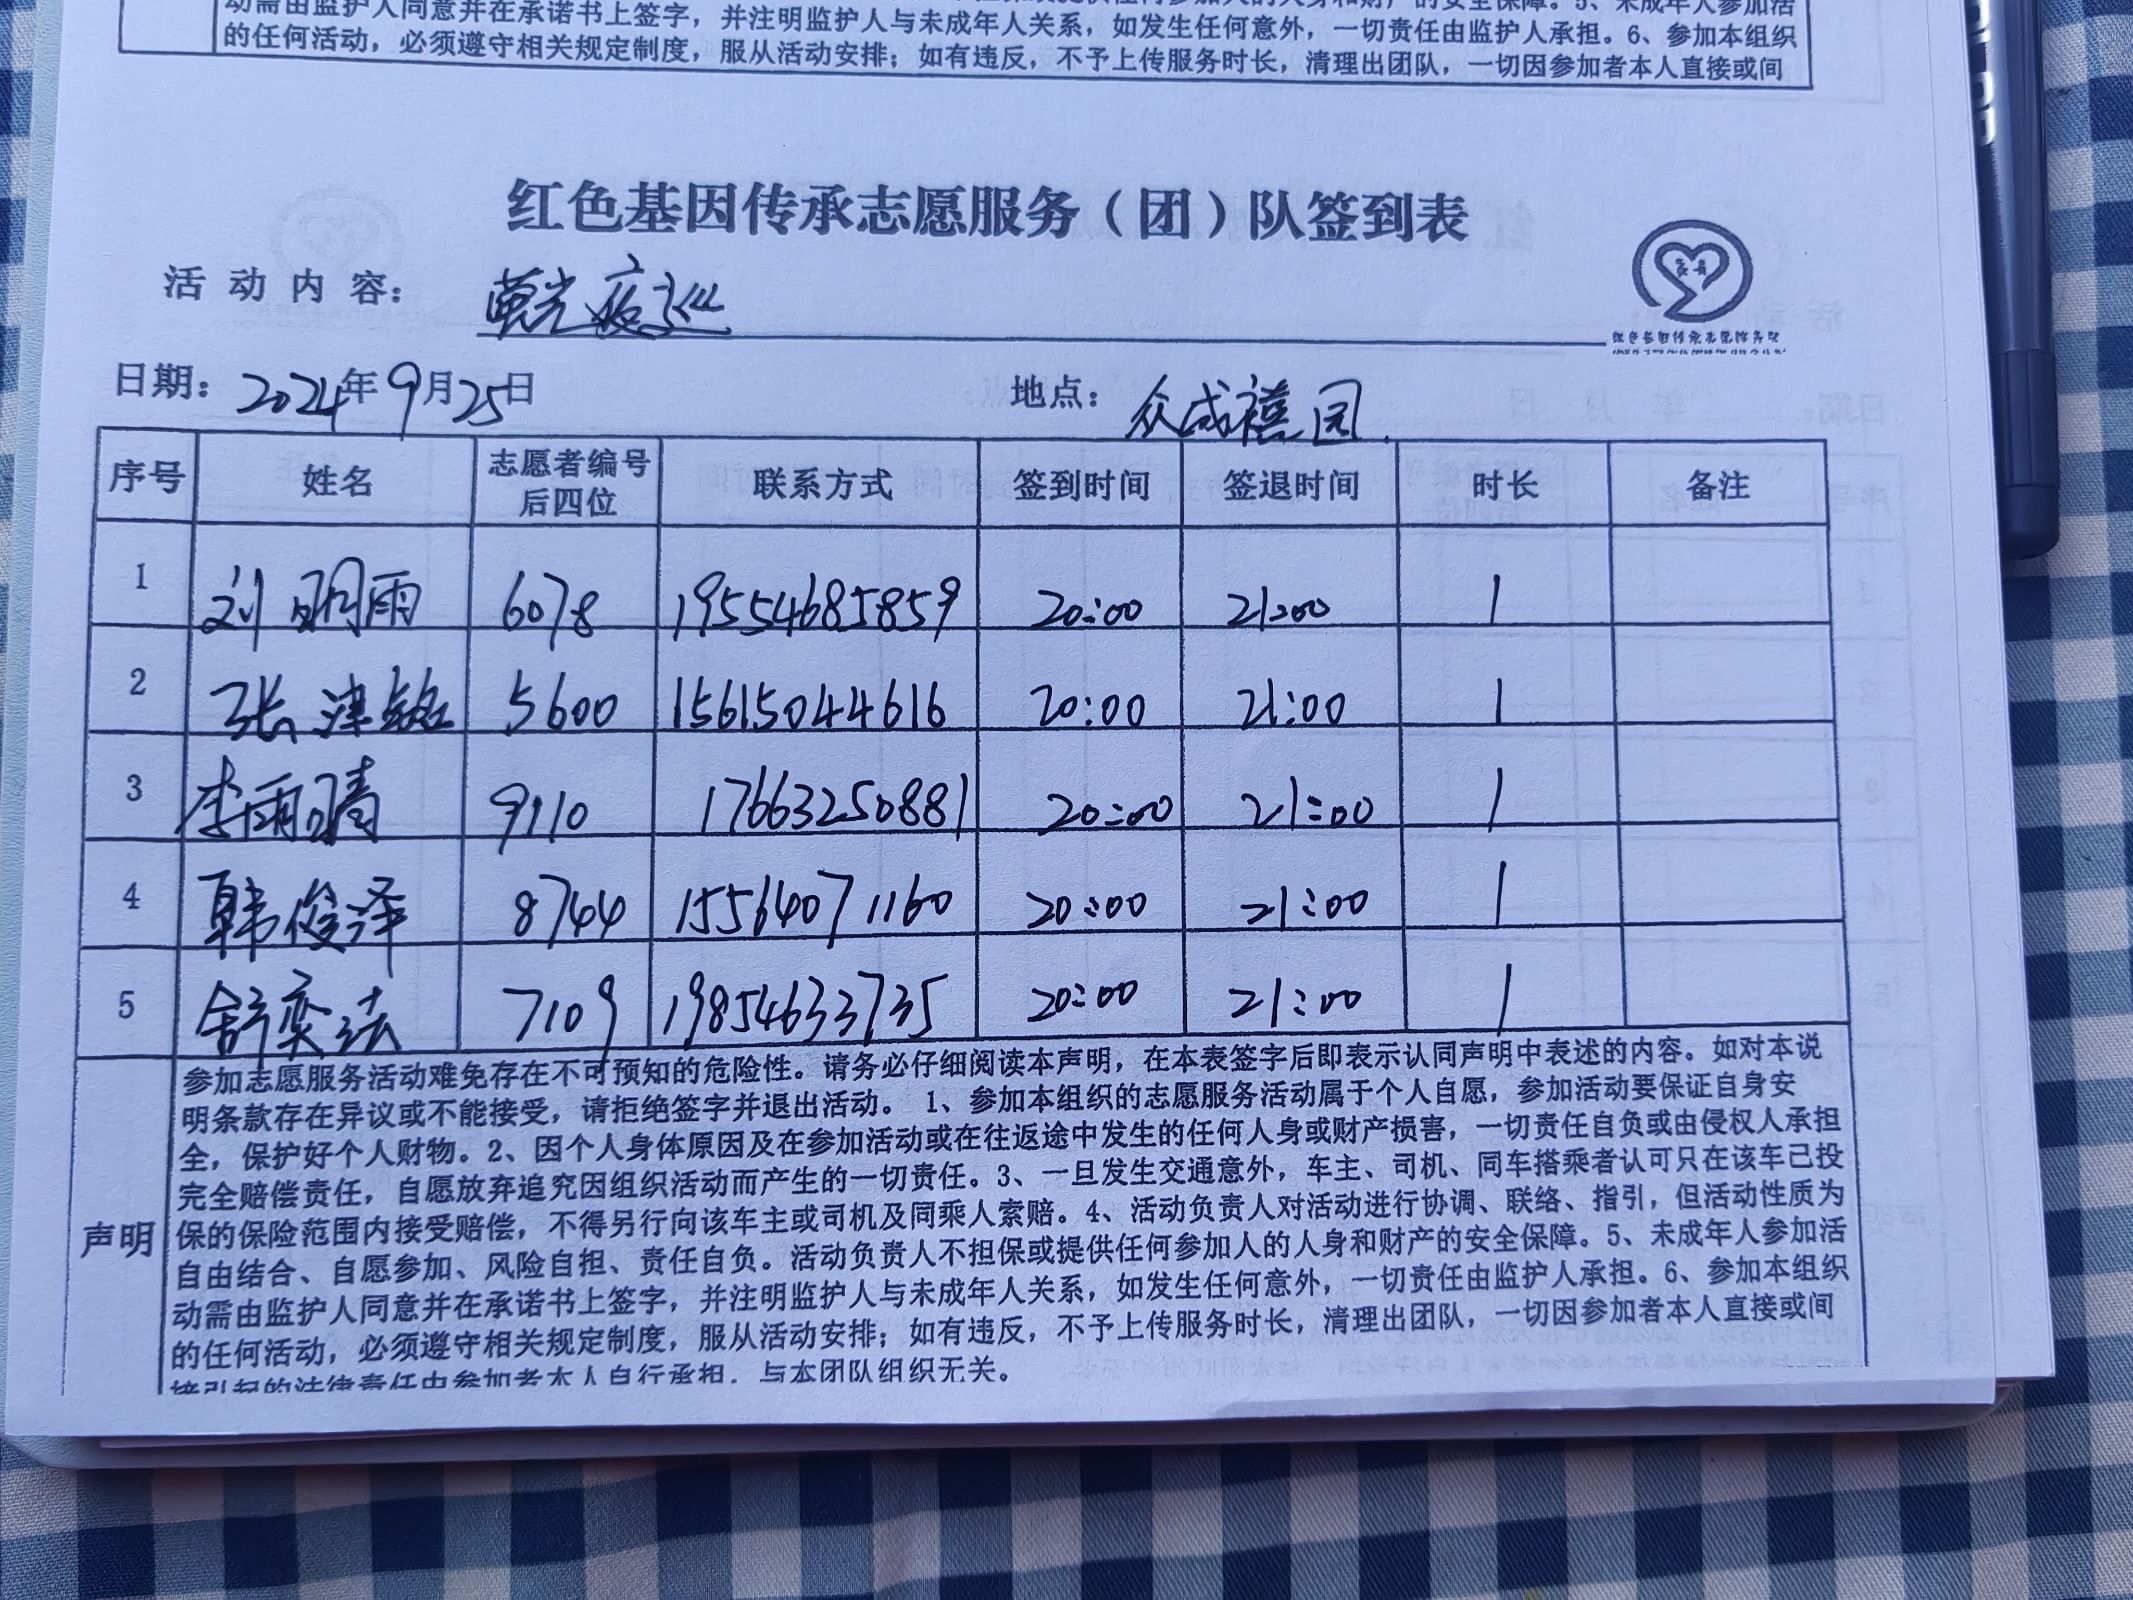 动需由监护人同意并在承诺书上签字，并注明监护人与未成年人关系，如发生任何意外，一切责任由监护人承担。6、参加本组织
的任何活动，必须遵守相关规定制度，服从活动安排；如有违反，不予上传服务时长，清理出团队，一切因参加者本人直接或间
红色基因传承志愿服务（团）队签到表
活动内容： 萤光夜巡
日期：2024年9月25日 地点：众成禧园
序号 姓名 志愿者编号后四位 联系方式 签到时间 签退时间 时长 备注
1 刘明雨 6078 19554685859 20:00 21:00 1
2 张津铭 5600 15615044616 20:00 21:00 1
3 李雨晴 9110 17663250881 20:00 21:00 1
4 韩俊泽 8744 15564071160 20:00 21:00 1
5 舒奕法 7109 19854633735 20:00 21:00 1
声明
参加志愿服务活动难免存在不可预知的危险性。请务必仔细阅读本声明，在本表签字后即表示认同声明中表述的内容。如对本说
明条款存在异议或不能接受，请拒绝签字并退出活动。 1、参加本组织的志愿服务活动属于个人自愿，参加活动要保证自身安
全，保护好个人财物。2、因个人身体原因及在参加活动或在往返途中发生的任何人身或财产损害，一切责任自负或由侵权人承担
完全赔偿责任，自愿放弃追究因组织活动而产生的一切责任。3、一旦发生交通意外，车主、司机、同车搭乘者认可只在该车已投
保的保险范围内接受赔偿，不得另行向该车主或司机及同乘人索赔。4、活动负责人对活动进行协调、联络、指引，但活动性质为
自由结合、自愿参加、风险自担、责任自负。活动负责人不担保或提供任何参加人的人身和财产的安全保障。5、未成年人参加活
动需由监护人同意并在承诺书上签字，并注明监护人与未成年人关系，如发生任何意外，一切责任由监护人承担。6、参加本组织
的任何活动，必须遵守相关规定制度，服从活动安排；如有违反，不予上传服务时长，清理出团队，一切因参加者本人直接或间
接引起的法律责任由参加者本人自行承担，与本团队组织无关。